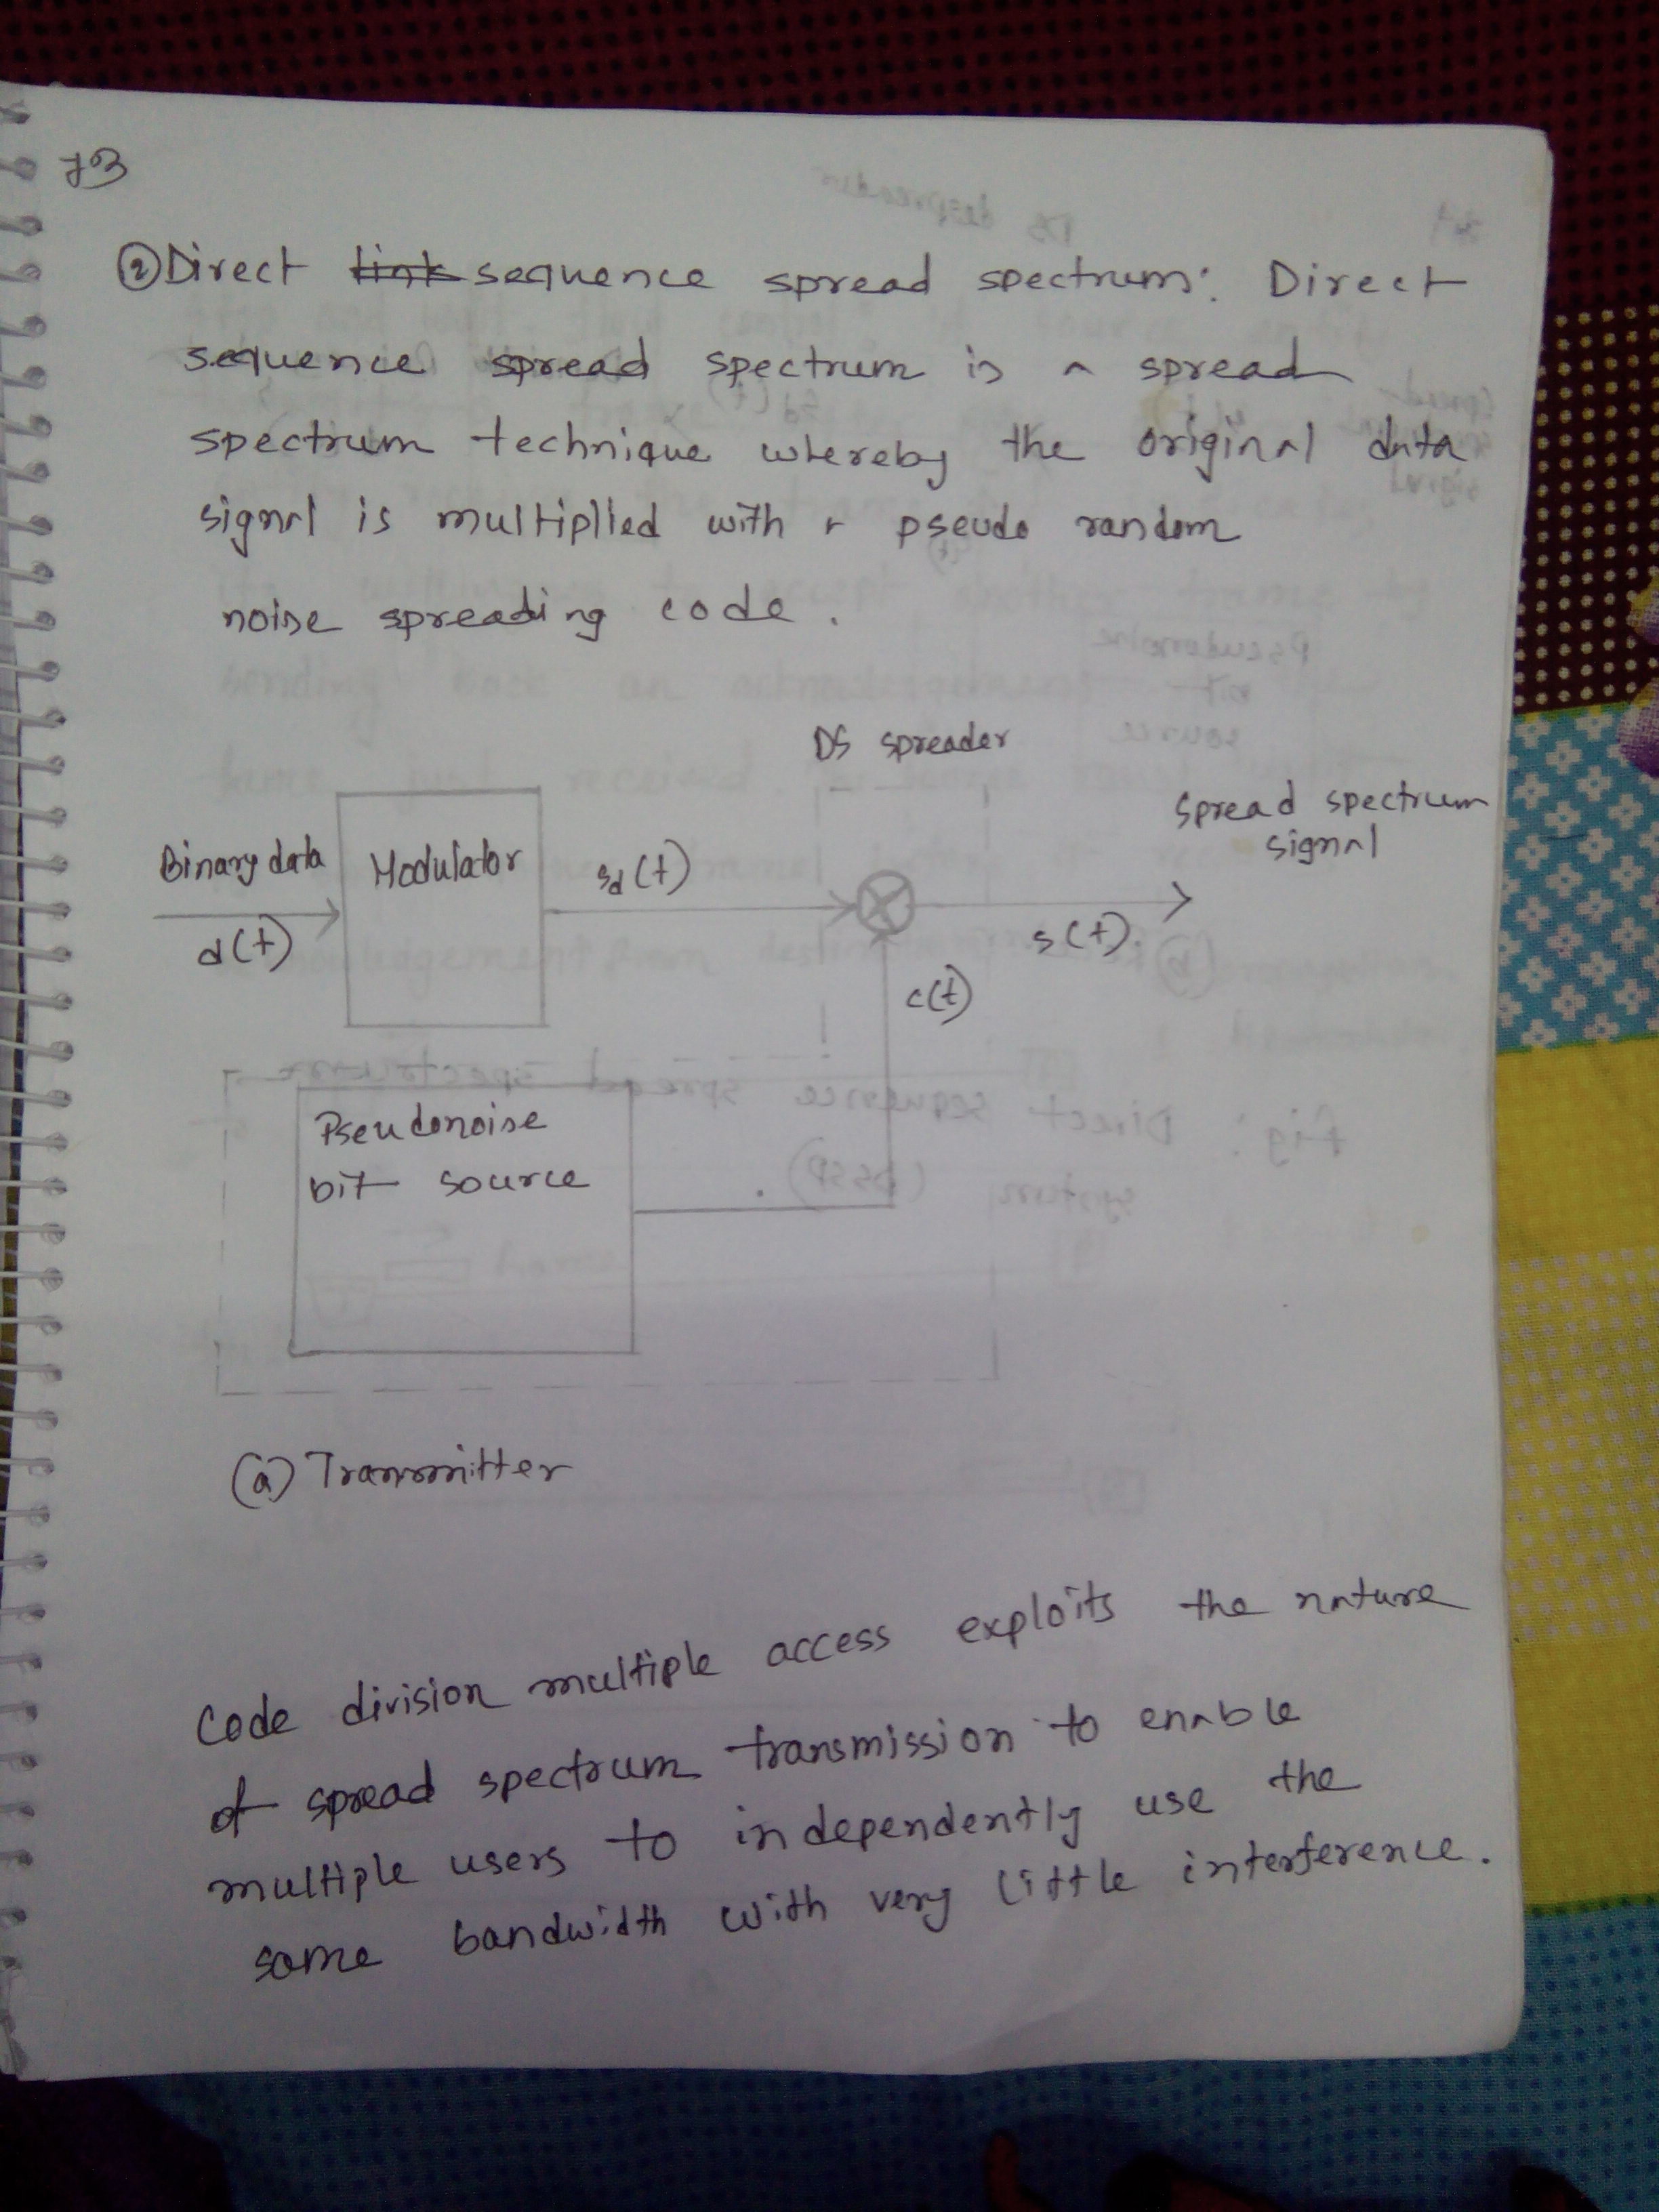 73
② Direct link sequence spread spectrum: Direct
sequence spread spectrum is a spread
spectrum technique whereby the original data
signal is multiplied with a pseudo random
noise spreading code.
DS spreader
Spread spectrum
signal
Binary data
Modulator
sd(t)
d(t)
s(t).
c(t)
Pseudonoise
bit source
(a) Transmitter
Code division multiple access exploits the nature
of spread spectrum transmission to enable
multiple users to independently use the
same bandwidth with very little interference.